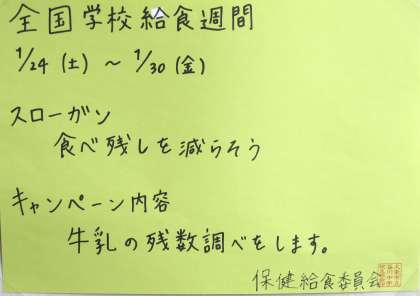 全国学校給食週間
1/24(土)～1/30(金)
スローガン
食べ残しを減らそう
キャンペーン内容
牛乳の残数調べをします。
保健給食委員会